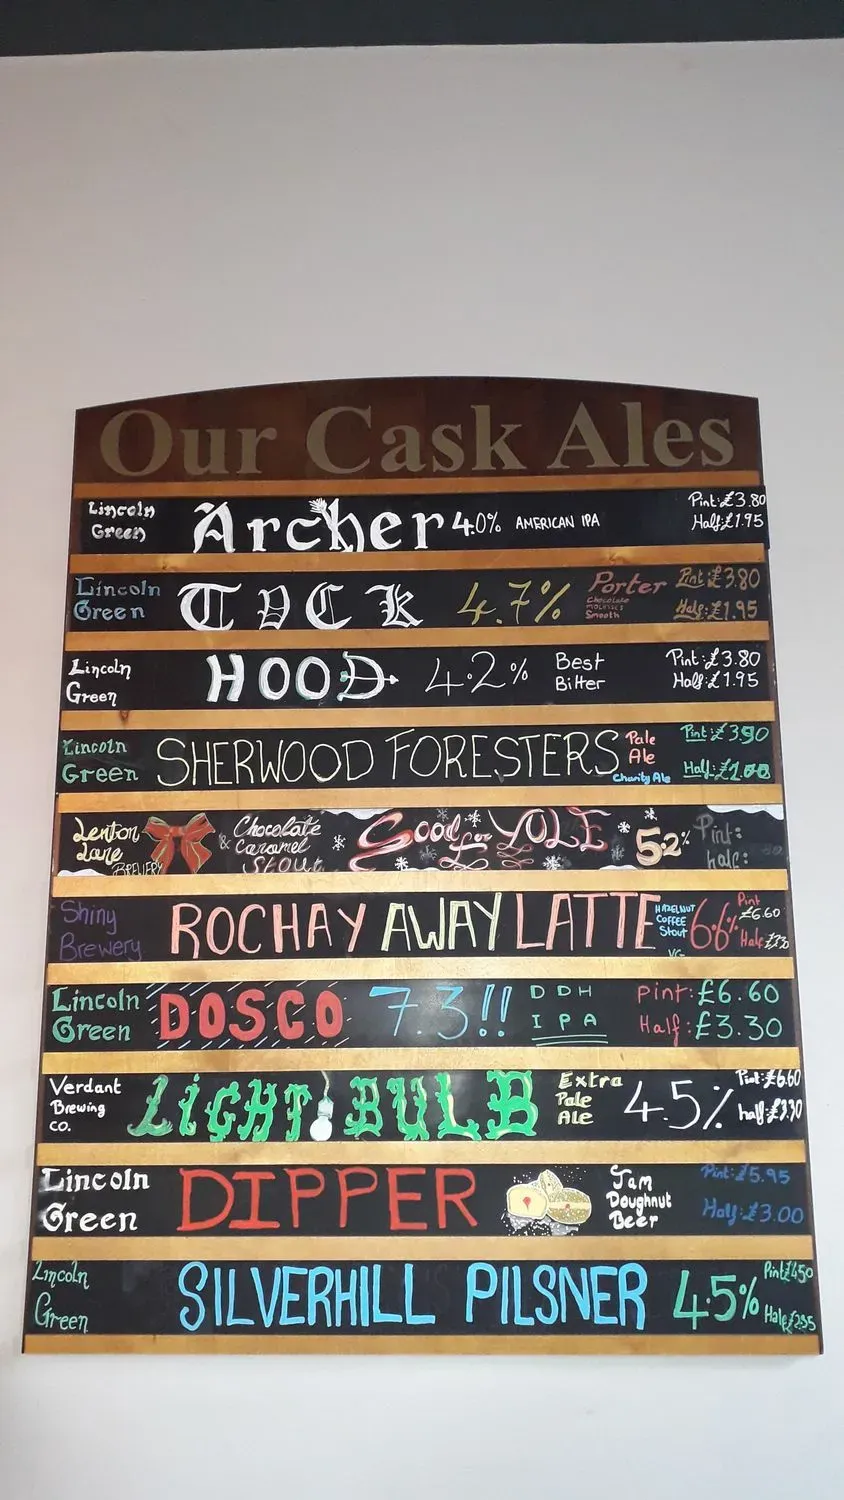 Our Cask Ales
Lincoln Green Archer 4.0% AMERICAN IPA Pint: £3.80 Half: £1.95
Lincoln Green TUCK 4.7% Porter Chocolate molasses Smooth Pint: £3.80 Half: £1.95
Lincoln Green HOOD 4.2% Best Bitter Pint: £3.80 Half: £1.95
Lincoln Green SHERWOOD FORESTERS Pale Ale Charity Ale Pint: £3.90 Half: £2.00
Lenton Lane BREWERY & Chocolate Caramel Stout Good for YOLE 5.2% Pint: half:
Shiny Brewery ROCHAY AWAY LATTE HAZELNUT COFFEE Stout VG 6.6% Pint £6.60 Half
Lincoln Green DOSCO 7.3!! DDH IPA Pint: £6.60 Half: £3.30
Verdant Brewing CO. LIGHT BULB Extra Pale Ale 4.5% Pint: £6.60 half: £3.30
Lincoln Green DIPPER Jam Doughnut Beer Pint: £5.95 Half: £3.00
Lincoln Green SILVERHILL PILSNER 4.5% Pint £4.50 Half